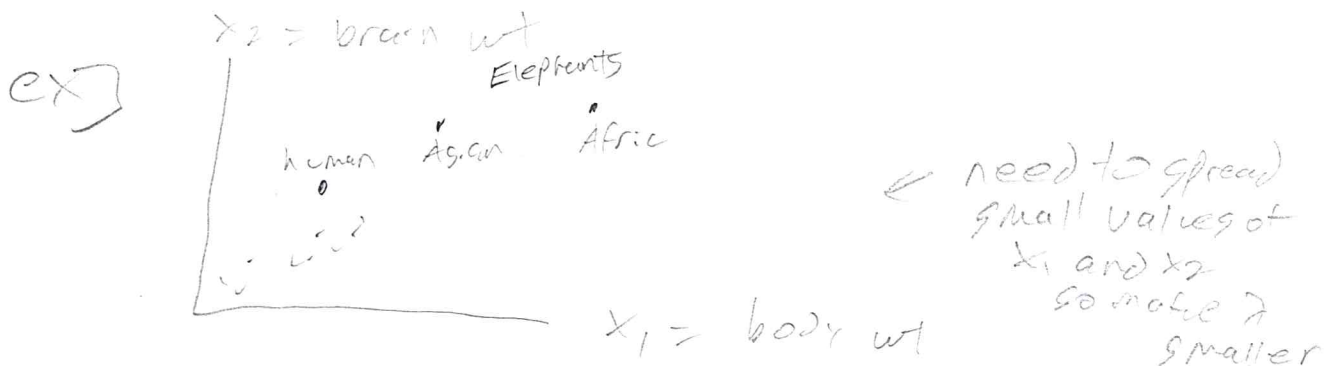 x2 = brain wt
ex]
Elephants
human Asian Afric
← need to spread
small values of
x1 and x2
so make λ
smaller
x1 = body wt